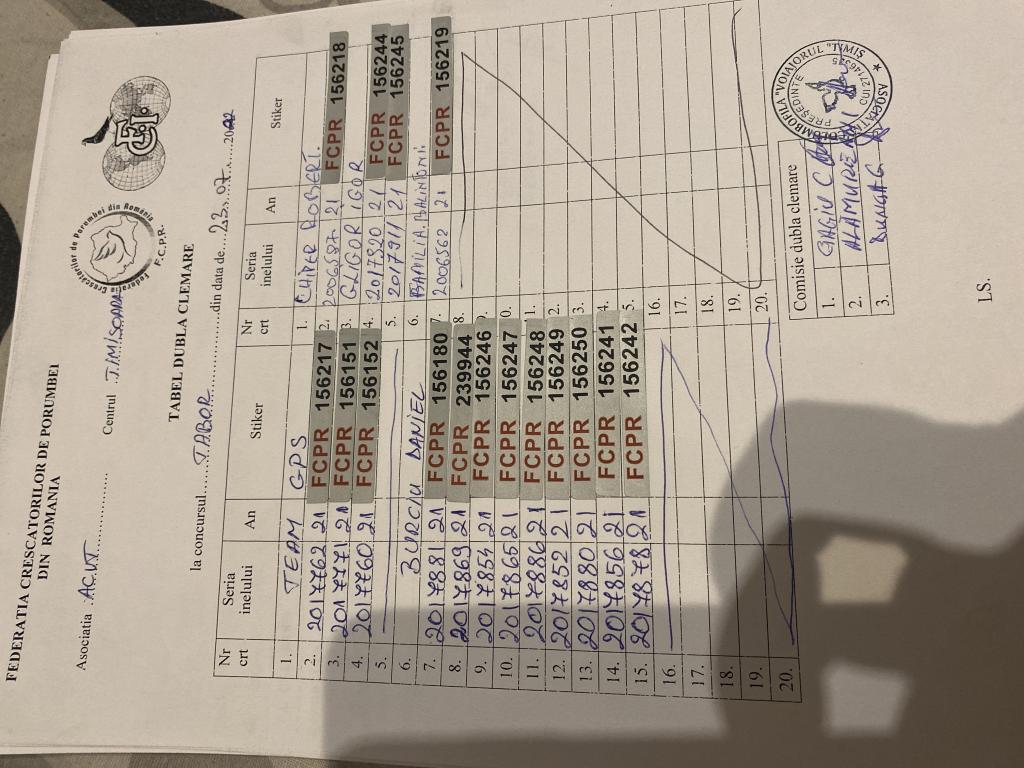 FEDERATIA CRESCATORILOR DE PORUMBEI
DIN ROMANIA
Asociatia A.C.V.T. Centrul TIMISOARA
Federatia Crescătorilor de Porumbei din România
F.C.P.R.
FCI
TABEL DUBLA CLEMARE
la concursul TABOR din data de 23.07.2022
Nr crt Seria inelului An Stiker Nr crt Seria inelului An Stiker
1. TEAM GPS 1. CHIPER ROBERT
2. 2017762 21 FCPR 156217 2. 2006587 21 FCPR 156218
3. 2017771 21 FCPR 156151 3. GLIGOR IGOR
4. 2017760 21 FCPR 156152 4. 2017920 21 FCPR 156244
5. 5. 2017911 21 FCPR 156245
6. BURCIU DANIEL 6.
7. 2017881 21 FCPR 156180 7. 2006562 21 FCPR 156219
8. 2017869 21 FCPR 239944 8.
9. 2017854 21 FCPR 156246 9.
10. 2017865 21 FCPR 156247 0.
11. 2017886 21 FCPR 156248 1.
12. 2017852 21 FCPR 156249 2.
13. 2017880 21 FCPR 156250 3.
14. 2017856 21 FCPR 156241 4.
15. 2017878 21 FCPR 156242 5.
16. 16.
17. 17.
18. 18.
19. 19.
20. 20.
Comisie dubla clemare
1. GAGIU C
2.
3.
LS.
COLUMBOFILA "VOIAJORUL "TIMIS
ASOCIATIA
PRESEDINTE